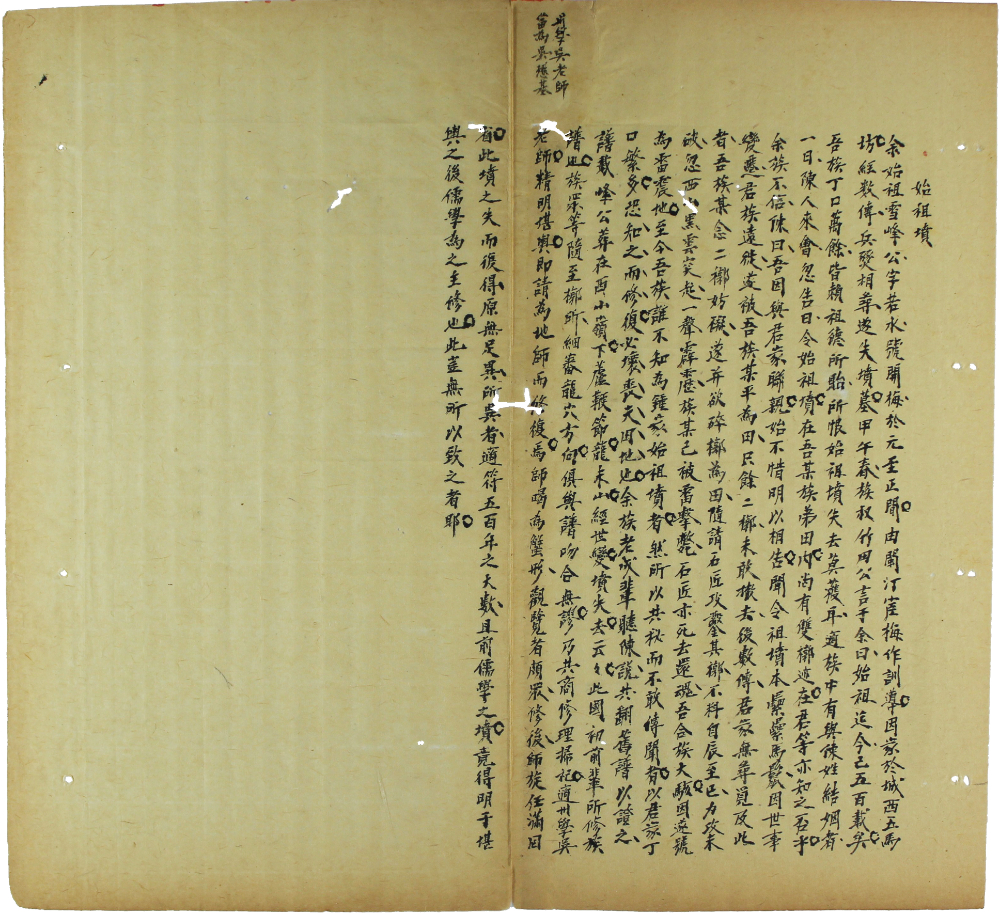 始祖墳
余始祖雪峰公字若水號開梅於元至正間由閩汀崖梅作訓導因家於城西五馬
坊經數傳兵燹相尋遂失墳墓甲午春族叔竹岡公言于余曰始祖迄今已五百載矣
吾族丁口萬餘皆賴祖德所貽所恨始祖墳失去莫獲耳適族中有與陳姓結姻者
一日陳人來會忽告曰令始祖墳在吾某族弟田內尚有雙櫛迹在君等亦知之否乎
余族不信陳曰吾因與君家聯親始不惜明以相告聞令祖墳本纍纍馬鬣因世事
變遷君族遠徙遂被吾族某平為田只餘二櫛未敢撤去後數傳君家無尋覓及此
者吾族某念二櫛妨礙遂并欲碎櫛為田隨請石匠攻鑿其櫛不料自辰至巳方攻未
破忽西山黑雲突起一聲霹靂族某已被雷擊斃石匠亦死去還魂吾合族大駭因遂號
為雷震地至今吾族誰不知為鍾家始祖墳者然所以共秘而不敢傳聞者以君家丁
口繁多恐知之而修復必壞喪夫因地也余族老成輩聽陳說共翻舊譜以證之
譜載峰公葬在西小嶺下蘆鞭節龍未山經世變墳失去云々此國初前輩所修族
譜也族眾等隨至櫛所細審龍穴方向俱與譜吻合無謬乃共商修理掃祀適州學吳
老師精明堪輿即請為地師而修復焉師喝為蟹形觀覽者頗眾修後師旋任滿回
省此墳之失而復得原無足異所異者適符五百年之大數且前儒學之墳竟得明于堪
輿之後儒學為之主修也此豈無所以致之者耶
吳老師